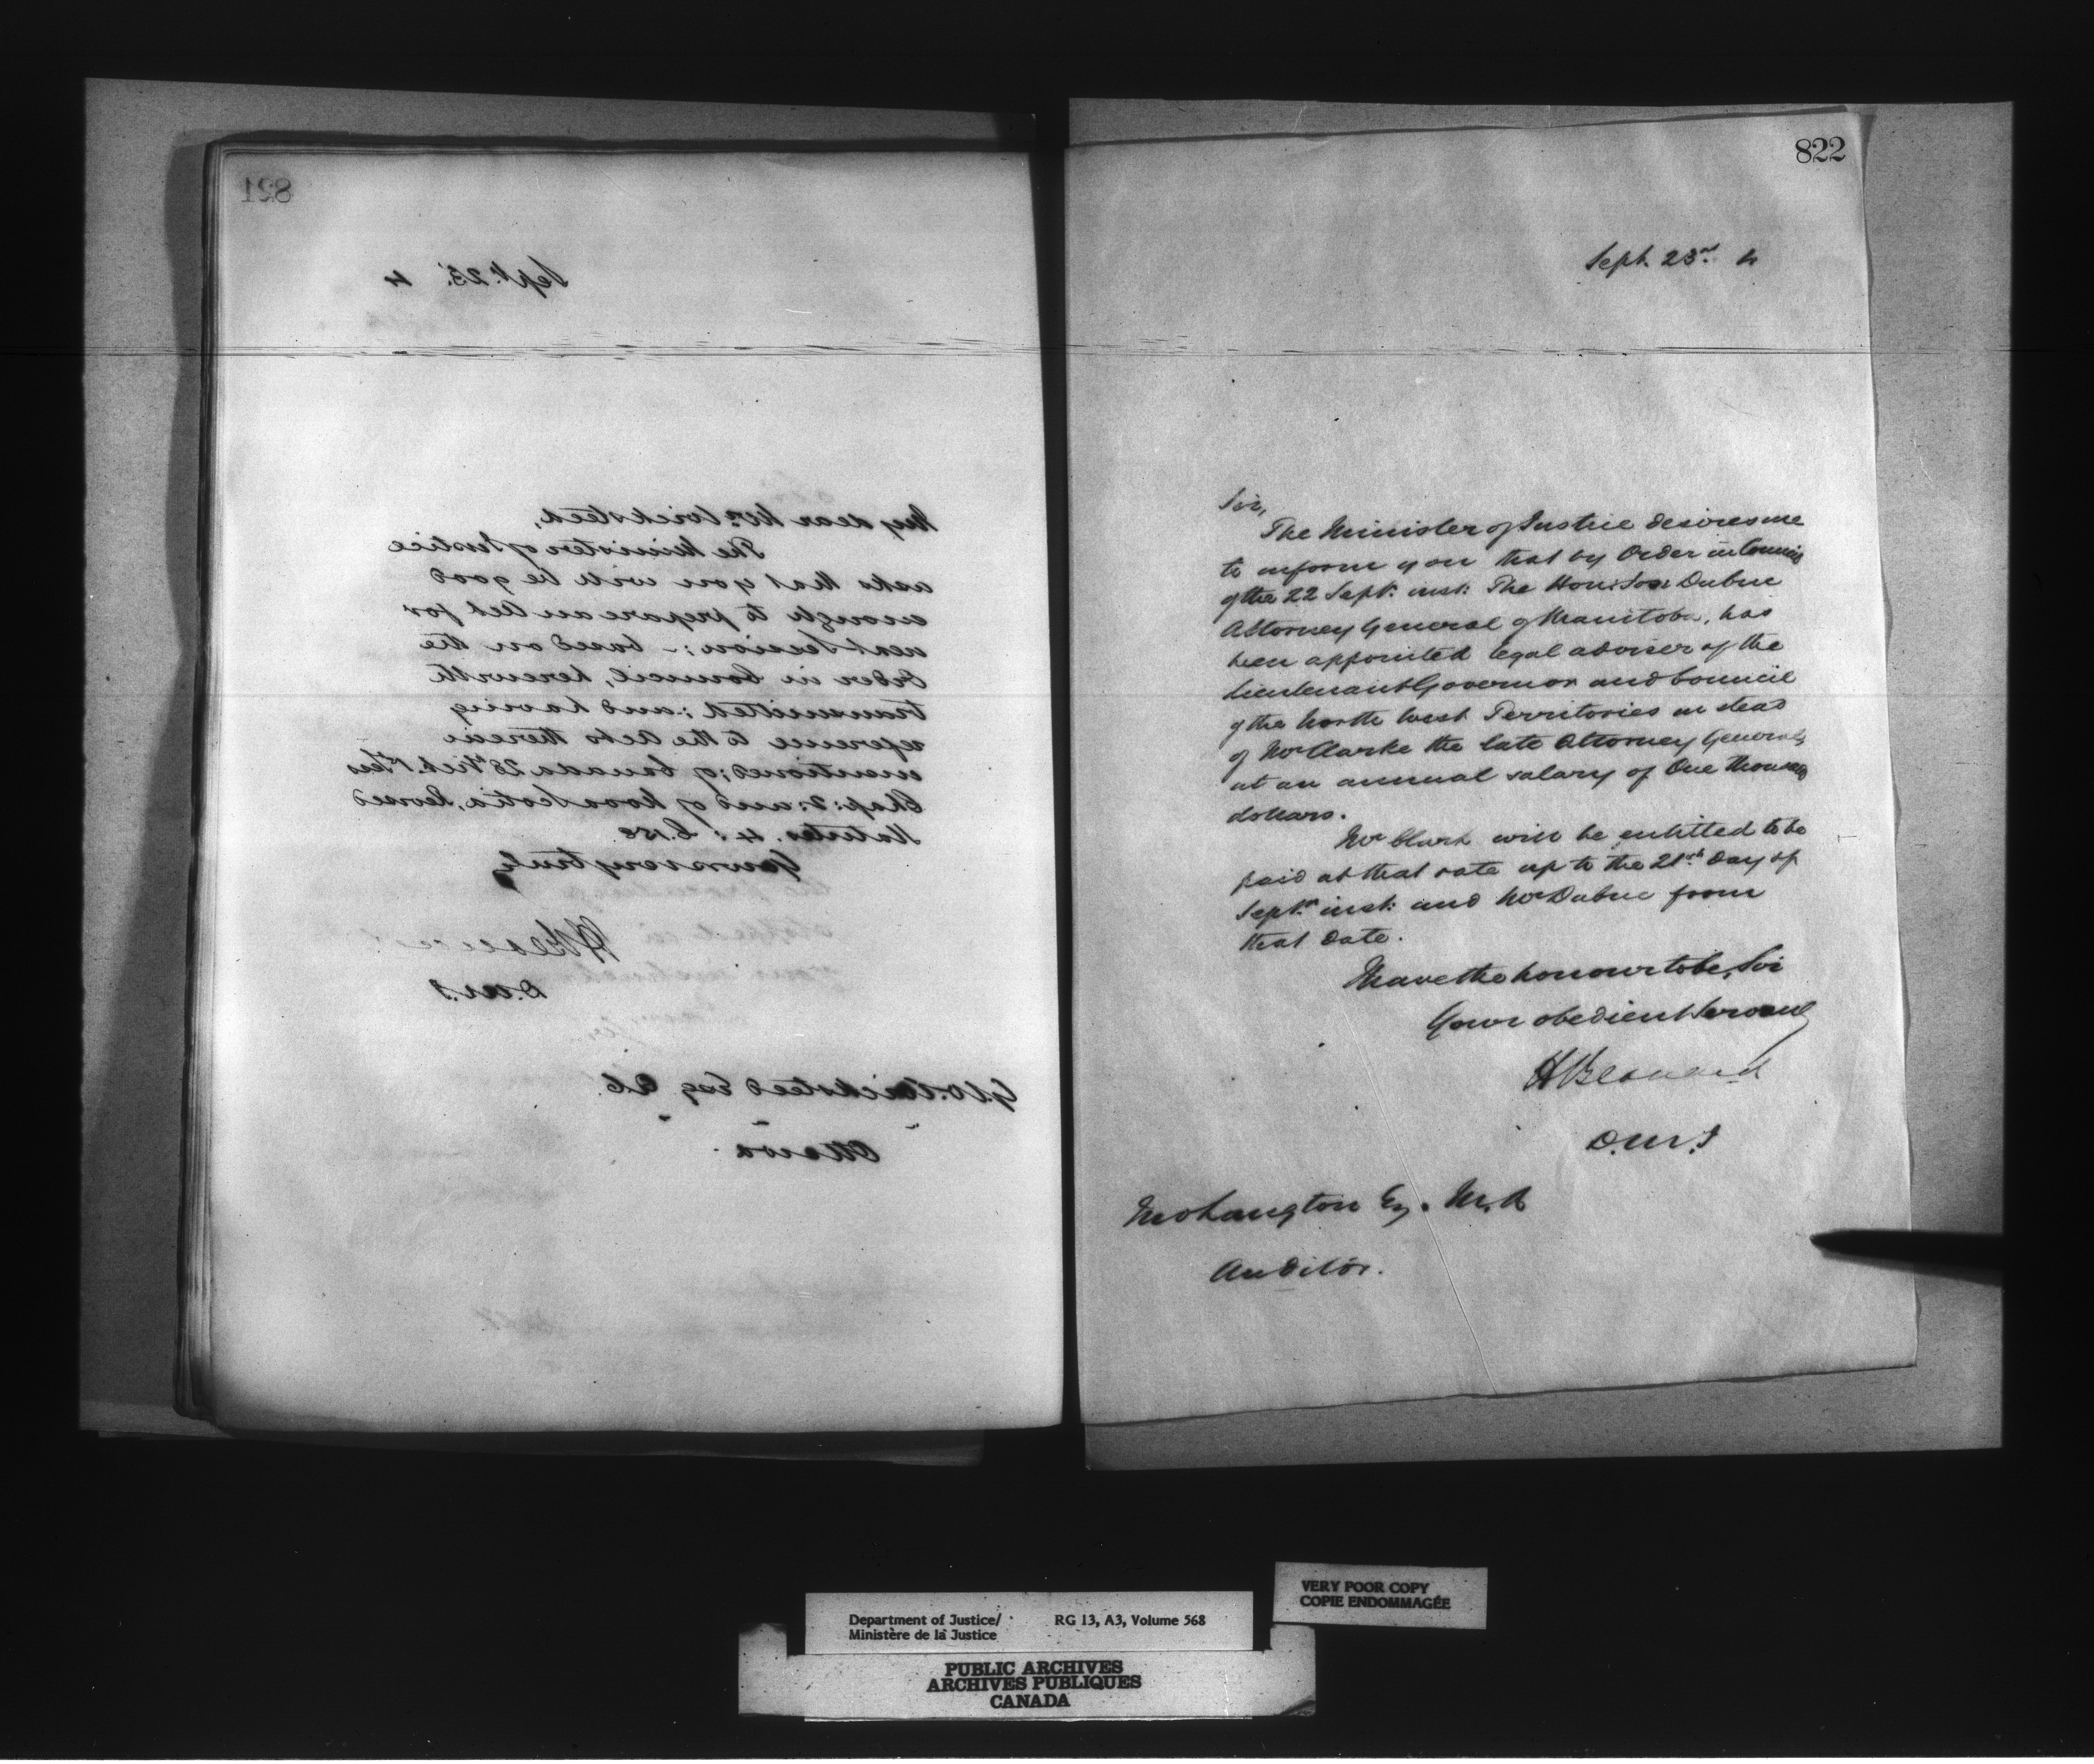 821
Sept. 23. 4
My dear Mr. Wicksteed,
The Minister of Justice
asks that you will be good
enough to prepare an Act for
next Session; - based on the
Order in Council, herewith
transmitted; and having
reference to the Acts therein
mentioned; of Canada 28th Vict. 1st Sess
Chap: 2: and of Nova Scotia, Revised
Statutes. 4: C. 158
Yours very truly
H Bernard
D.M.J
G.W. Wicksteed Esq Q.C.
Ottawa
822
Sept. 23rd 4
Sir,
The Minister of Justice desires me
to inform you that by Order in Council
of the 22 Sept. inst: The Hon: Dubuc
Attorney General of Manitoba, has
been appointed legal adviser of the
Lieutenant Governor and Council
of the North West Territories in stead
of Mr Clarke the late Attorney General,
at an annual salary of One thousand
dollars.
Mr Clark will be entitled to be
paid at that rate up to the 21st day of
Septr. inst: and Mr Dubuc from
that date.
I have the honour to be, Sir
Your obedient Servant
H Bernard
D.M.J
Jno Langton Esq. M.A
Auditor.
VERY POOR COPY
COPIE ENDOMMAGÉE
Department of Justice/ RG 13, A3, Volume 568
Ministère de la Justice
PUBLIC ARCHIVES
ARCHIVES PUBLIQUES
CANADA